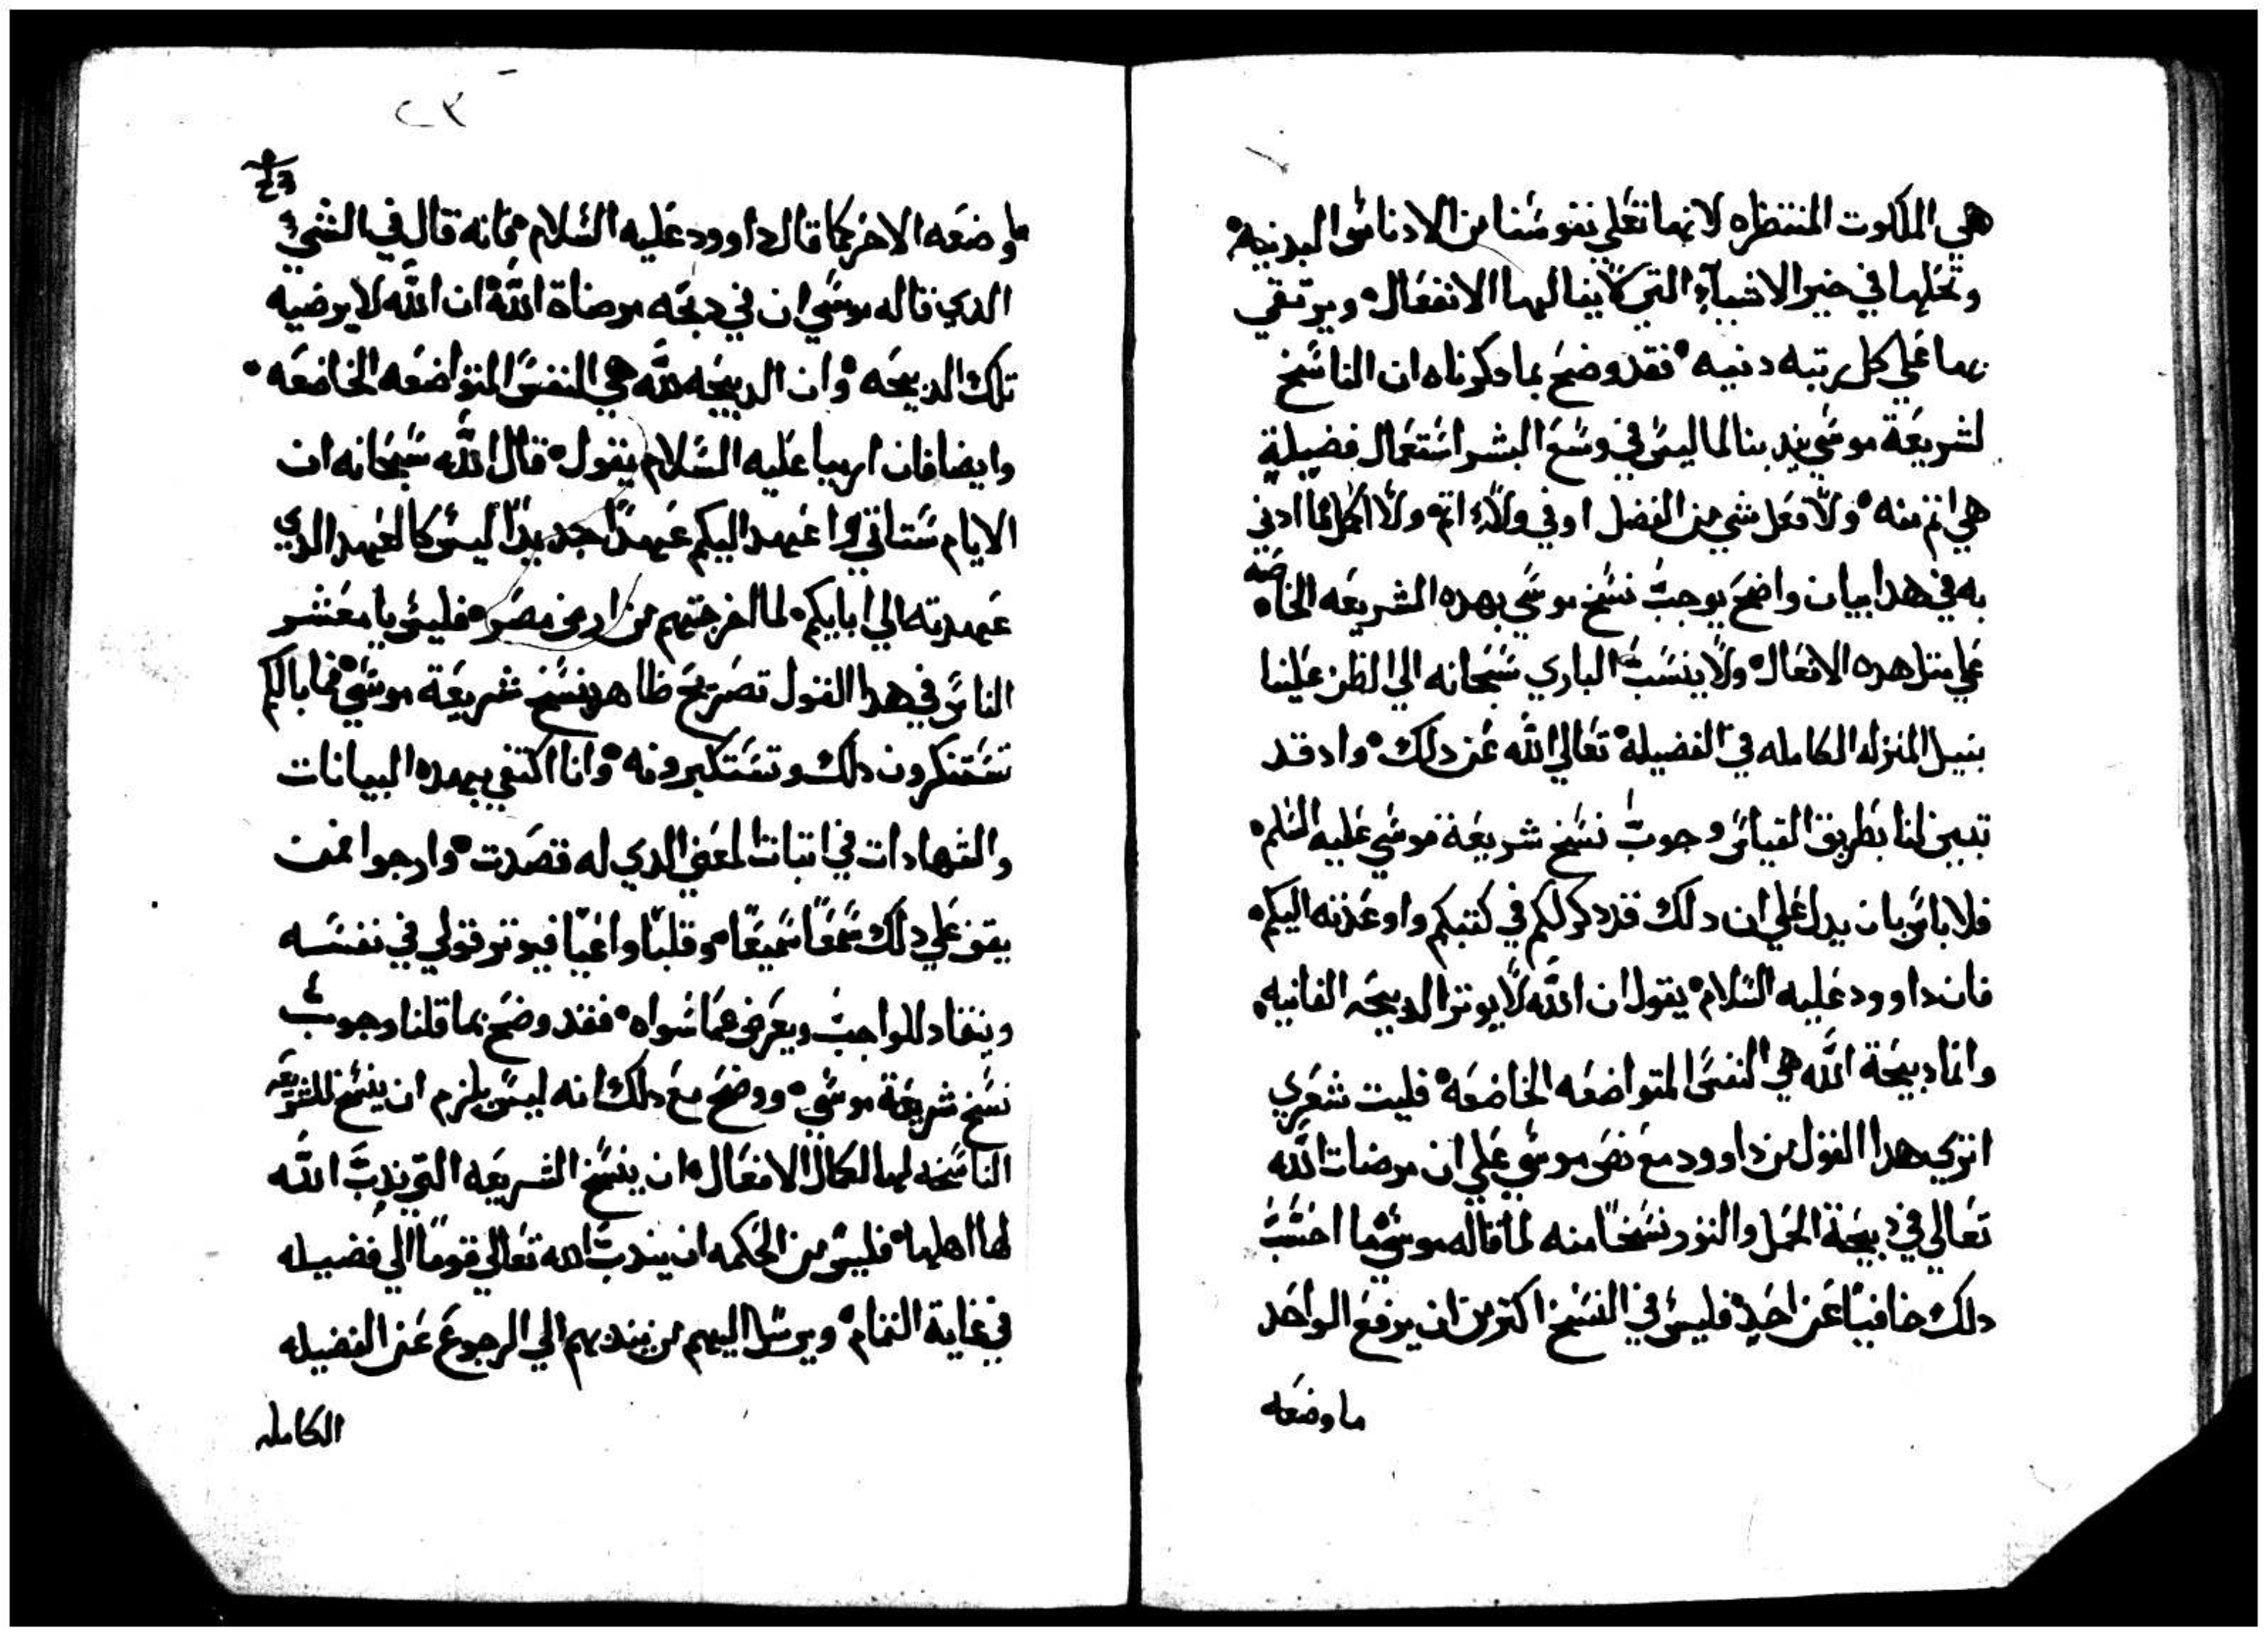 هي الملكوت المنتظره لانها تعلي نفوسنا من الادناس البدنيه
وتحلها في حيز الاشياء التي لا ينالها الانفعال ويرتقي
بها علي كل رتبه دنيه فقد وضح بما دكرناه ان الناسخ
لشريعة موسي يندبنا لما ليس في وسع البشر استعمال فضيلة
هي اتم منه ولا فعل شي من الفضل اوفي ولا اتم ولا اكمل فما ادني
به في هدا بيان واضح يوجب نسخ موسي بهده الشريعه الخاصه
علي مثل هده الافعال ولا ينسب الباري سبحانه الي الظن علينا
بنيل المنزله الكامله في الفضيلة تعالي الله عن دلك واد قد
تبين لنا بطريق القياس وجوب نسخ شريعة موسي عليه السلم
فلا باس بان يدل علي ان دلك قد دكر لكم في كتبكم واوعدته اليكم
فان داوود عليه السلام يقول ان الله لا يوتر الدبيحه الفانيه
وانما دبيحة الله هي النفس المتواضعه الخاضعه فليت شعري
اتري هدا القول من داوود مع نص موسي علي ان مرضات الله
تعالي في دبيحة الحمل والثور نسخا منه لما قاله موسي ما احسب
دلك خافيا عن احد فليس في النسخ اكتر من ان يرفع الواحد
ما وضعه
٢٣
23
ما وضعه الاخر كما قال داوود عليه السلام فانه قال في الشي
الدي قاله موسي ان في دبحه مرضاة الله ان الله لا يرضيه
تلك الدبيحه وان الدبيحه لله هي النفس المتواضعه الخاضعه
وايضا فان ارميا عليه السلام يقول قال الله سبحانه ان
الايام ستاتي واعهد اليكم عهدا جديدا ليس كالعهد الدي
عهدته الي ابايكم لما اخرجتهم من ارض مصر فليس يا معشر
الناس في هدا القول تصريح ظاهر بنسخ شريعة موسي فما بالكم
تستنكرون دلك وتستكبرونه وانا اكتفي بهده البيانات
والشهادات في اتبات المعني الدي له قصدت وارجوا ممن
يقف علي دلك سمعا سميعا وقلبا واعيا فيوتر قولي في نفسه
وينقاد للواجب ويعرض عما سواه فقد وضح بما قلنا وجوب
نسخ شريعة موسي ووضح مع دلك انه ليس يلزم ان ينسخ للشريعه
الناسخه لها الكمال الافعال ان ينسخ الشريعه التي ندب الله
لها اهلها فليس من الحكمه ان يندب الله تعالي قوما الي فضيله
في غاية التمام ويرسل اليهم من يندبهم الي الرجوع عن الفضيله
الكامله